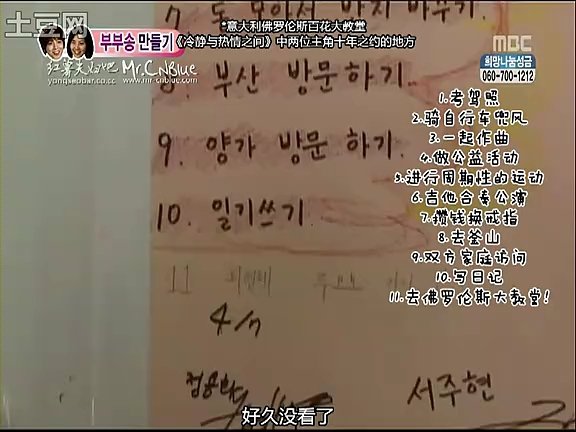 土豆网
부부송 만들기
红薯夫妇吧 Mr.CnBlue
yongseobar.co.cc www.mr-cnblue.com
*意大利佛罗伦斯百花大教堂
《冷静与热情之间》中两位主角十年之约的地方
MBC
희망나눔성금
060-700-1212
7 돈 모아서 반지 바꾸기
8. 부산 방문 하기
9. 양가 방문 하기
10. 일기쓰기
11
4/7
정용화
서주현
1.考驾照
2.骑自行车兜风
3.一起作曲
4.做公益活动
5.进行周期性的运动
6.吉他合奏公演
7.攒钱换戒指
8.去釜山
9.双方家庭访问
10.写日记
11.去佛罗伦斯大教堂!
好久没看了